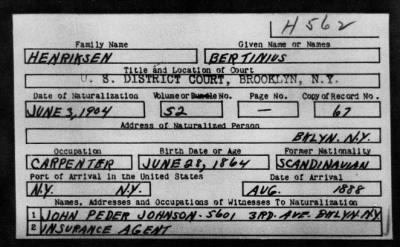 H562
Family Name Given Name or Names
HENRIKSEN BERTINIUS
Title and Location of Court
U. S. DISTRICT COURT, BROOKLYN, N.Y.
Date of Naturalization Volume or Bundle No. Page No. Copy of Record No.
JUNE 3, 1904 52 — 67
Address of Naturalized Person
BKLYN. N.Y.
Occupation Birth Date or Age Former Nationality
CARPENTER JUNE 28, 1864 SCANDINAVIAN
Port of Arrival in the United States Date of Arrival
N.Y. N.Y. AUG. 1888
Names, Addresses and Occupations of Witnesses To Naturalization
1 JOHN PEDER JOHNSON - 5601 3RD. AVE. BKLYN. N.Y.
2 INSURANCE AGENT